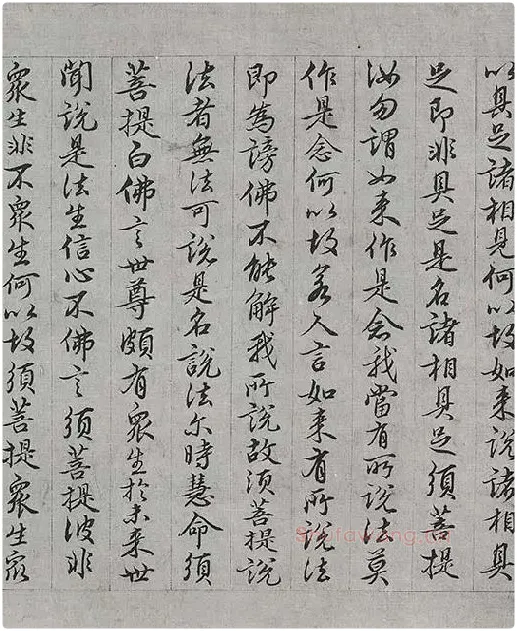 以具足諸相見何以故如來說諸相具
足即非具足是名諸相具足須菩提
汝勿謂如來作是念我當有所說法莫
作是念何以故若人言如來有所說法
即為謗佛不能解我所說故須菩提說
法者無法可說是名說法尔時慧命須
菩提白佛言世尊頗有眾生於未來世
聞說是法生信心不佛言須菩提彼非
眾生非不眾生何以故須菩提眾生眾